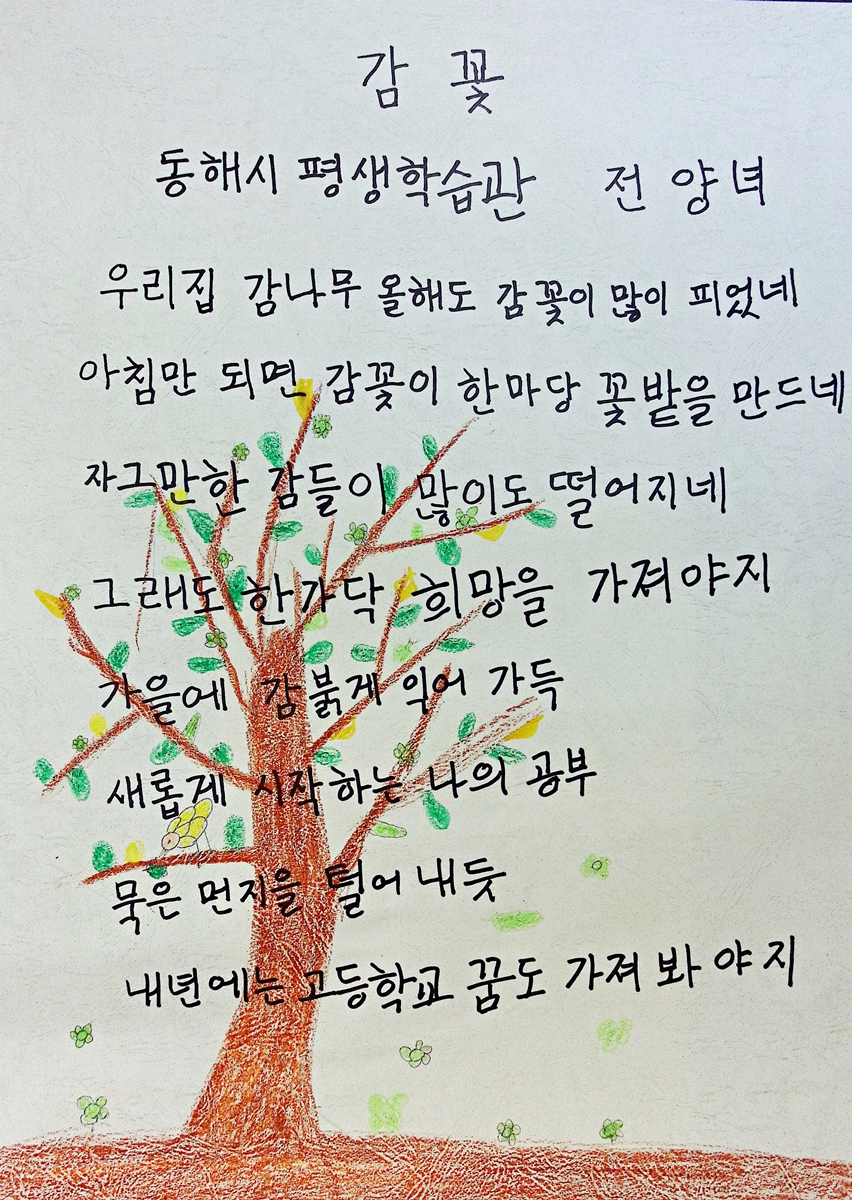 감 꽃
동해시 평생학습관 전 양 녀
우리집 감나무 올해도 감꽃이 많이 피었네
아침만 되면 감꽃이 한마당 꽃밭을 만드네
자그만한 감들이 많이도 떨어지네
그래도 한가닥 희망을 가져야지
가을에 감붉게 익어 가득
새롭게 시작하는 나의 공부
묵은 먼지을 털어 내듯
내년에는 고등학교 꿈도 가져 봐 야 지